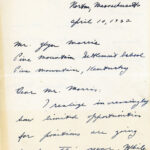 Norton, Massachusetts
April 10, 1942
Mr Glyn Morris
Pine Mountain Settlement School
Pine Mountain, Kentucky
Dear Mr. Morris,
I realize increasingly
how limited opportunities
for positions are going
this year. While